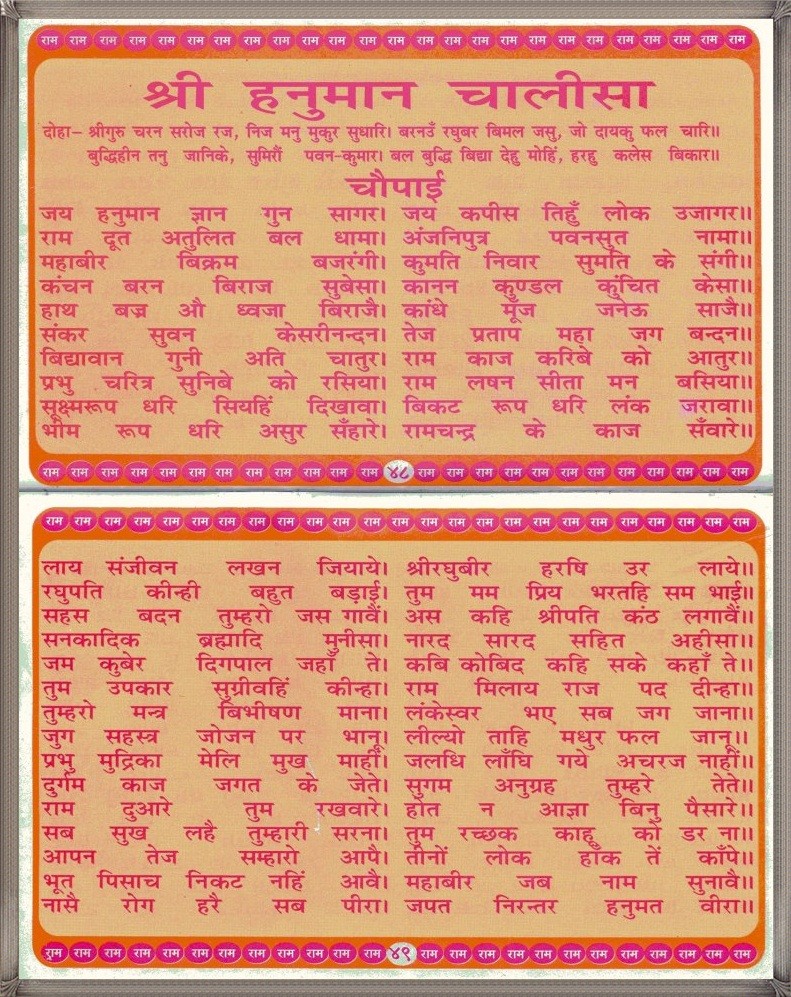 राम राम राम राम राम राम राम राम राम राम राम राम राम राम राम राम राम राम राम राम राम राम राम राम
श्री हनुमान चालीसा
दोहा– श्रीगुरु चरन सरोज रज, निज मनु मुकुर सुधारि। बरनउँ रघुबर बिमल जसु, जो दायकु फल चारि॥
बुद्धिहीन तनु जानिके, सुमिरौं पवन-कुमार। बल बुद्धि बिद्या देहु मोहिं, हरहु कलेस बिकार॥
चौपाई
जय हनुमान ज्ञान गुन सागर। जय कपीस तिहुँ लोक उजागर॥
राम दूत अतुलित बल धामा। अंजनिपुत्र पवनसुत नामा॥
महाबीर बिक्रम बजरंगी। कुमति निवार सुमति के संगी॥
कंचन बरन बिराज सुबेसा। कानन कुण्डल कुंचित केसा॥
हाथ बज्र औ ध्वजा बिराजै। कांधे मूंज जनेऊ साजै॥
संकर सुवन केसरीनन्दन। तेज प्रताप महा जग बन्दन॥
बिद्यावान गुनी अति चातुर। राम काज करिबे को आतुर॥
प्रभु चरित्र सुनिबे को रसिया। राम लषन सीता मन बसिया॥
सूक्ष्मरूप धरि सियहिं दिखावा। बिकट रूप धरि लंक जरावा॥
भीम रूप धरि असुर सँहारे। रामचन्द्र के काज सँवारे॥
राम राम राम राम राम राम राम राम राम राम राम राम ४८ राम राम राम राम राम राम राम राम राम राम राम राम
राम राम राम राम राम राम राम राम राम राम राम राम राम राम राम राम राम राम राम राम राम राम राम राम
लाय संजीवन लखन जियाये। श्रीरघुबीर हरषि उर लाये॥
रघुपति कीन्ही बहुत बड़ाई। तुम मम प्रिय भरतहि सम भाई॥
सहस बदन तुम्हरो जस गावैं। अस कहि श्रीपति कंठ लगावैं॥
सनकादिक ब्रह्मादि मुनीसा। नारद सारद सहित अहीसा॥
जम कुबेर दिगपाल जहाँ ते। कबि कोबिद कहि सके कहाँ ते॥
तुम उपकार सुग्रीवहिं कीन्हा। राम मिलाय राज पद दीन्हा॥
तुम्हरो मन्त्र बिभीषण माना। लंकेस्वर भए सब जग जाना॥
जुग सहस्त्र जोजन पर भानू। लील्यो ताहि मधुर फल जानू॥
प्रभु मुद्रिका मेलि मुख माहीं। जलधि लाँघि गये अचरज नाहीं॥
दुर्गम काज जगत के जेते। सुगम अनुग्रह तुम्हरे तेते॥
राम दुआरे तुम रखवारे। होत न आज्ञा बिनु पैसारे॥
सब सुख लहै तुम्हारी सरना। तुम रच्छक काहू को डर ना॥
आपन तेज सम्हारो आपै। तीनों लोक हाँक तें काँपे॥
भूत पिसाच निकट नहिं आवै। महाबीर जब नाम सुनावै॥
नासै रोग हरै सब पीरा। जपत निरन्तर हनुमत वीरा॥
राम राम राम राम राम राम राम राम राम राम राम राम ४९ राम राम राम राम राम राम राम राम राम राम राम राम